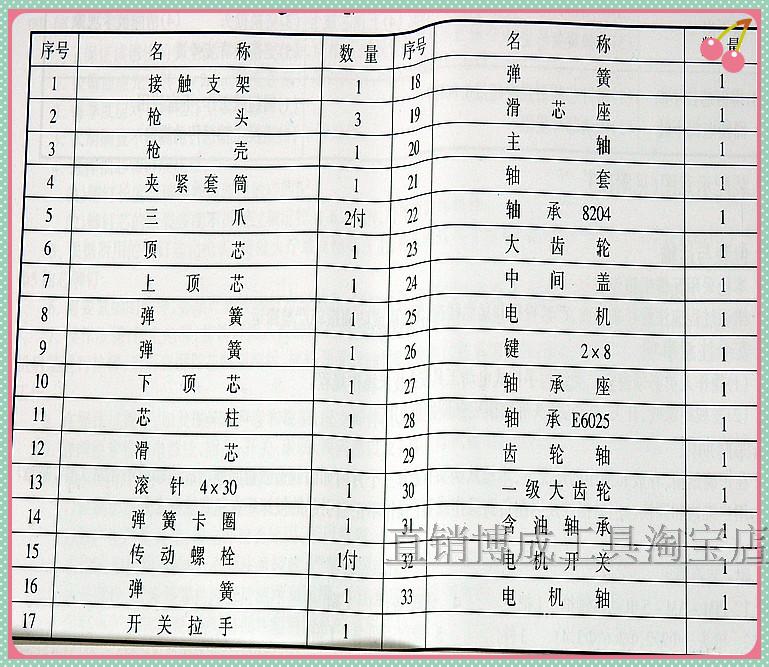 序号 名称 数量
1 接触支架 1
2 枪头 3
3 枪壳 1
4 夹紧套筒 1
5 三爪 2付
6 顶芯 1
7 上顶芯 1
8 弹簧 1
9 弹簧 1
10 下顶芯 1
11 芯柱 1
12 滑芯 1
13 滚针4×30 1
14 弹簧卡圈 1
15 传动螺栓 1付
16 弹簧 1
17 开关拉手 1
序号 名称 数量
18 弹簧 1
19 滑芯座 1
20 主轴 1
21 轴套 1
22 轴承8204 1
23 大齿轮 1
24 中间盖 1
25 电机 1
26 键2×8 1
27 轴承座 1
28 轴承E6025 1
29 齿轮轴 1
30 级大齿轮 1
31 含油轴承 1
32 电机开关 1
33 电机轴 1
直销博成工具淘宝店